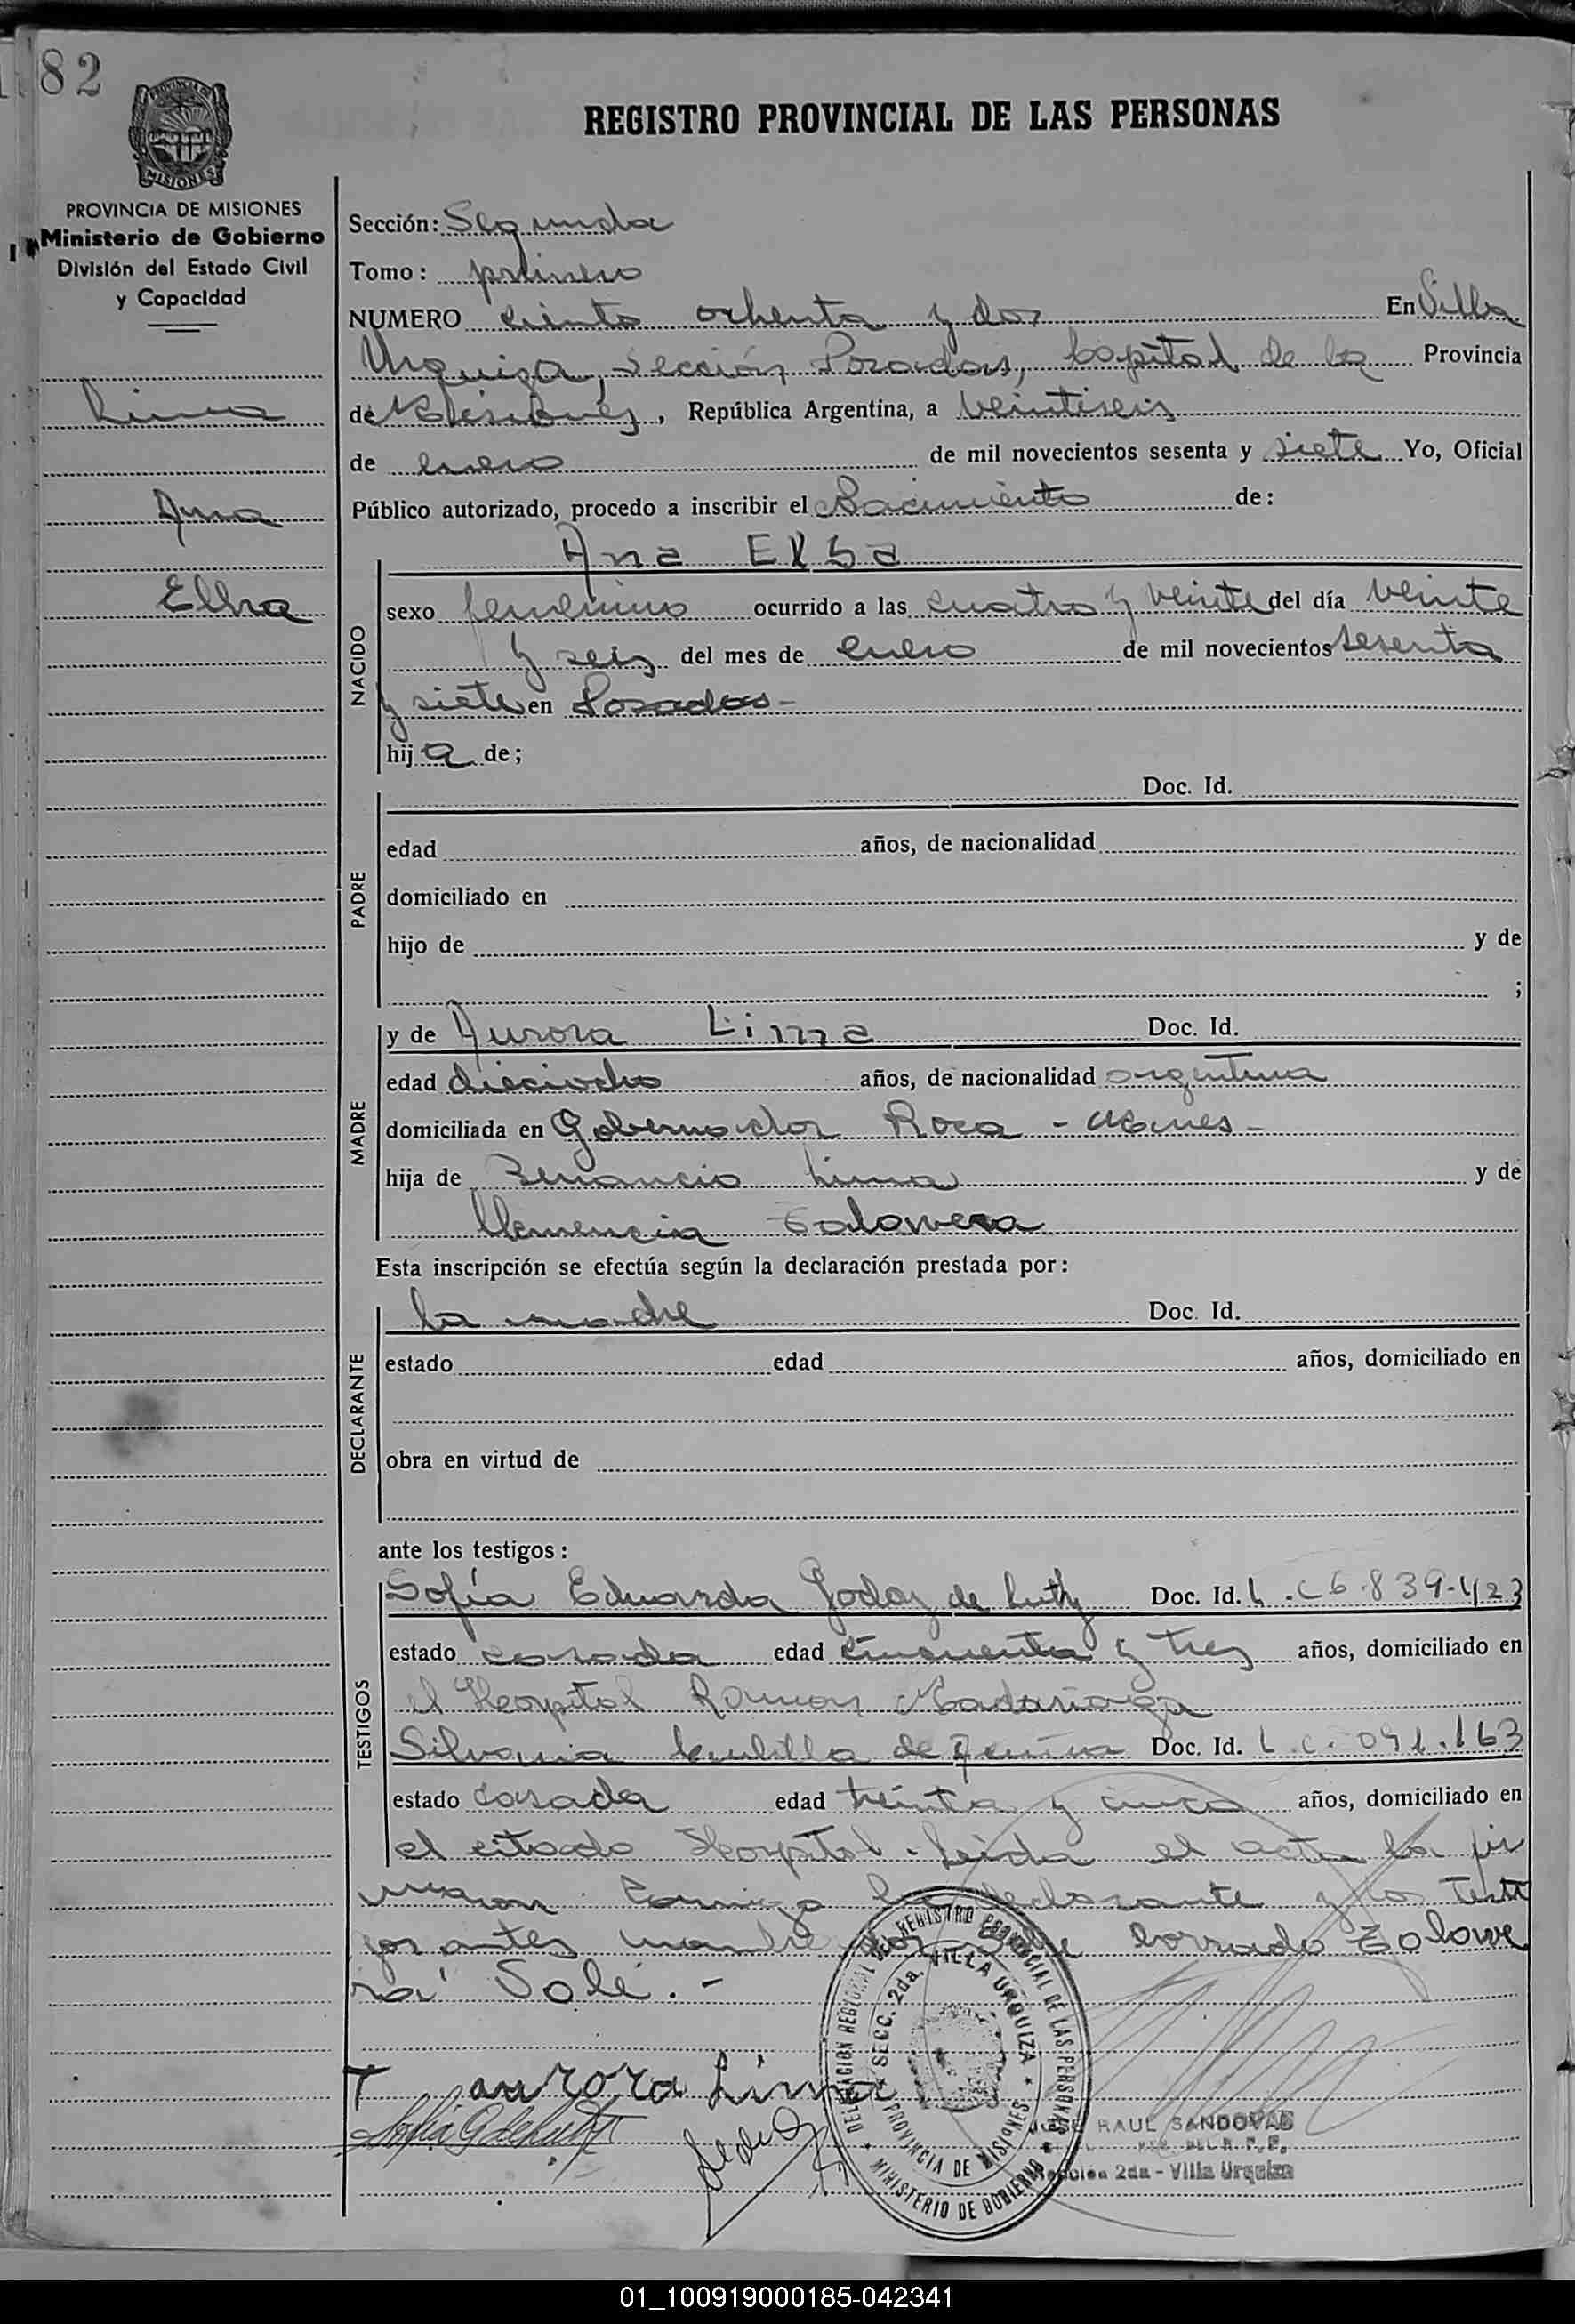 82
PROVINCIA DE MISIONES
MISIONES
PROVINCIA DE MISIONES
Ministerio de Gobierno
División del Estado Civil
y Capacidad
Lima
Ana
Elba
REGISTRO PROVINCIAL DE LAS PERSONAS
Sección: Segunda
Tomo: primero
NUMERO ciento ochenta y dos En Villa
Urquiza, sección Posadas, Capital de la Provincia
de Misiones, República Argentina, a veintiseis
de enero de mil novecientos sesenta y siete Yo, Oficial
Público autorizado, procedo a inscribir el Nacimiento de:
Ana Elba
NACIDO
sexo femenino ocurrido a las cuatro y veinte del día veinte
y seis del mes de enero de mil novecientos sesenta
y siete en Posadas -
hija de;
PADRE
Doc. Id.
edad años, de nacionalidad
domiciliado en
hijo de y de
;
MADRE
y de Aurora Lima Doc. Id.
edad dieciocho años, de nacionalidad argentina
domiciliada en Gobernador Roca - Mnes -
hija de Benancio Lima y de
Clemencia
Esta inscripción se efectúa según la declaración prestada por:
DECLARANTE
la madre Doc. Id.
estado edad años, domiciliado en
obra en virtud de
ante los testigos:
TESTIGOS
Sofía Eduarda Godoy de Luty Doc. Id. L.C 6.839.423
estado casada edad cincuenta y tres años, domiciliado en
el Hospital Ramon Madariaga
Silvania de Doc. Id. L.C. 091.163
estado casada edad treinta y cinco años, domiciliado en
el citado Hospital. Leida el acta la fir
maron conmigo la declarante y los testi
gos antes borrado
Vale. -
aurora Lima
DELEGACION REGIONAL DEL REGISTRO PROVINCIAL DE LAS PERSONAS
SECC. 2da. VILLA URQUIZA
PROVINCIA DE MISIONES
MINISTERIO DE GOBIERNO
JOSE RAUL SANDOVAL
Sección 2da - Villa Urquiza
01_100919000185-042341